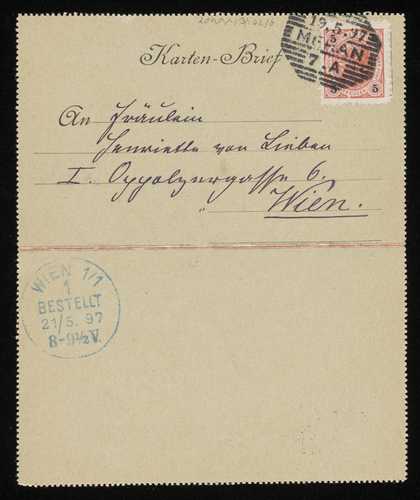 Karten-Brief
19.5.97
MERAN
7.A
5 5
An Fräulein
Henriette von Lieben
I. Oppolzergasse 6.
„ Wien.
WIEN 1/1
1
BESTELLT
21/5. 97
8-9½V.